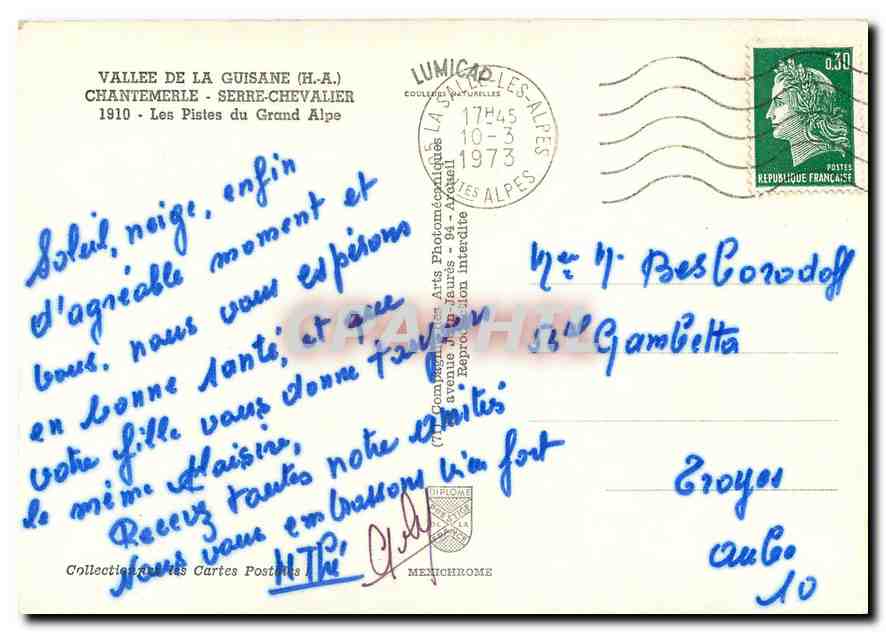 VALLEE DE LA GUISANE (H.-A.)
CHANTEMERLE - SERRE-CHEVALIER
1910 - Les Pistes du Grand Alpe
LUMICAP
COULEURS NATURELLES
05 LA SALLE-LES-ALPES
17H45
10-3
1973
HTES ALPES
0,30
POSTES
REPUBLIQUE FRANÇAISE
Soleil, neige, enfin
d'agréable moment et
vous. nous vous espérons
en bonne santé, et que
votre fille vous donne toujours
le même plaisire,
Recevez toutes notre amitiés
Nous vous embrassons bien fort
(71) Compagnie des Arts Photomécaniques
avenue Jean-Jaurès - 94 - Arcueil
Reproduction interdite
CPAPHIL
Gambetta
Troyes
Aube
10
DIPLOME
PRESTIGE
DE LA
FRANCE
Collectionnez les Cartes Postales
MEXICHROME